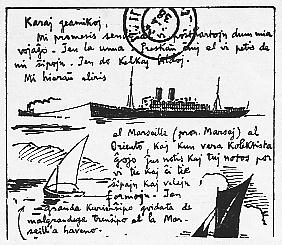 Karaj geamikoj,
Mi promesis sendi poŝtkartojn dum mia
vojaĝo. Jen la unua. Preskaŭ ĉiuj el vi petis de
mi ŝipojn. Jen do kelkaj ŝipoj.
Mi hieraŭ eliris
el Marseille (pron. Marsej) al
Oriento, kaj kun vera
ĝojo jus notis kaj tuj notos por
vi tie kaj ĉi tie
ŝipajn kaj velajn
formojn. Jen
granda kurierŝipo gvidata de
malgrandega trenŝipo el la Mar-
seill'a haveno.